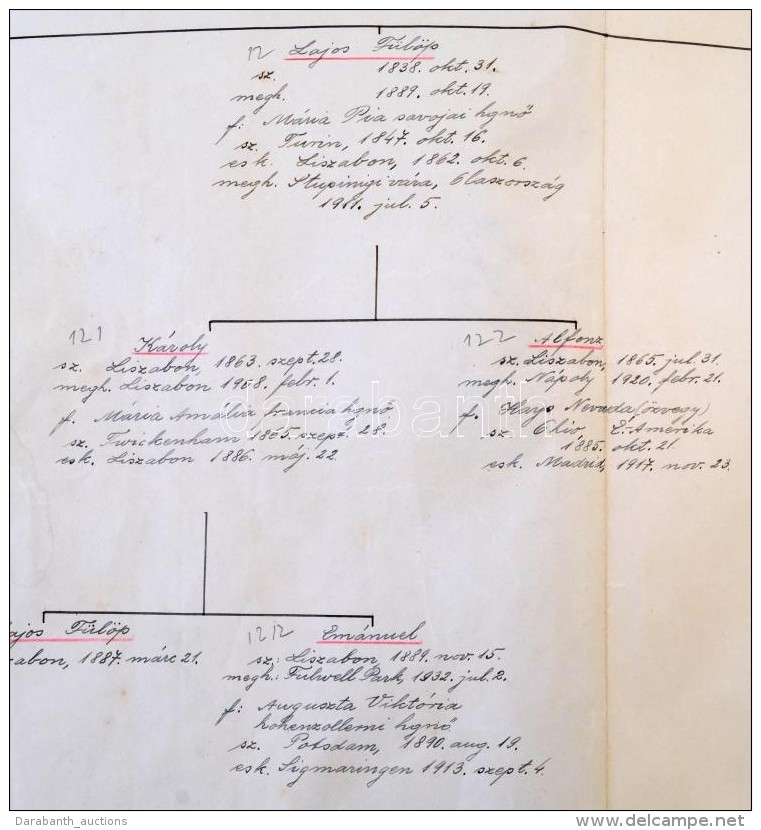 12 Lajos Fülöp
sz. 1838. okt. 31.
megh. 1889. okt. 19.
f: Mária Pia savojai hgnő
sz. Turin, 1847. okt. 16.
esk. Liszabon, 1862. okt. 6.
megh. Stupinigi vára, Olaszország
1911. jul. 5.
121 Károly
sz. Liszabon, 1863. szept. 28.
megh. Liszabon 1908. febr. 1.
f. Mária Amália francia hgnő
sz. Twickenham 1865. szept. 28.
esk. Liszabon 1886. máj. 22.
122 Alfonz
sz. Liszabon, 1865. jul. 31.
megh. Nápoly 1920. febr. 21.
f. Hays Nevada (özvegy)
sz. Ohio, É. Amerika
1885. okt. 21.
esk. Madrid, 1917. nov. 23.
ajos Fülöp
zabon, 1887. márc 21.
1212 Emánuel
sz.: Liszabon, 1889. nov. 15.
megh.: Fulwell Park 1932. jul. 2.
f: Auguszta Viktória
hohenzollerni hgnő
sz. Potsdam, 1890. aug. 19.
esk. Sigmaringen 1913. szept. 4.
darabanth
Darabanth_auctions
www.delcampe.net